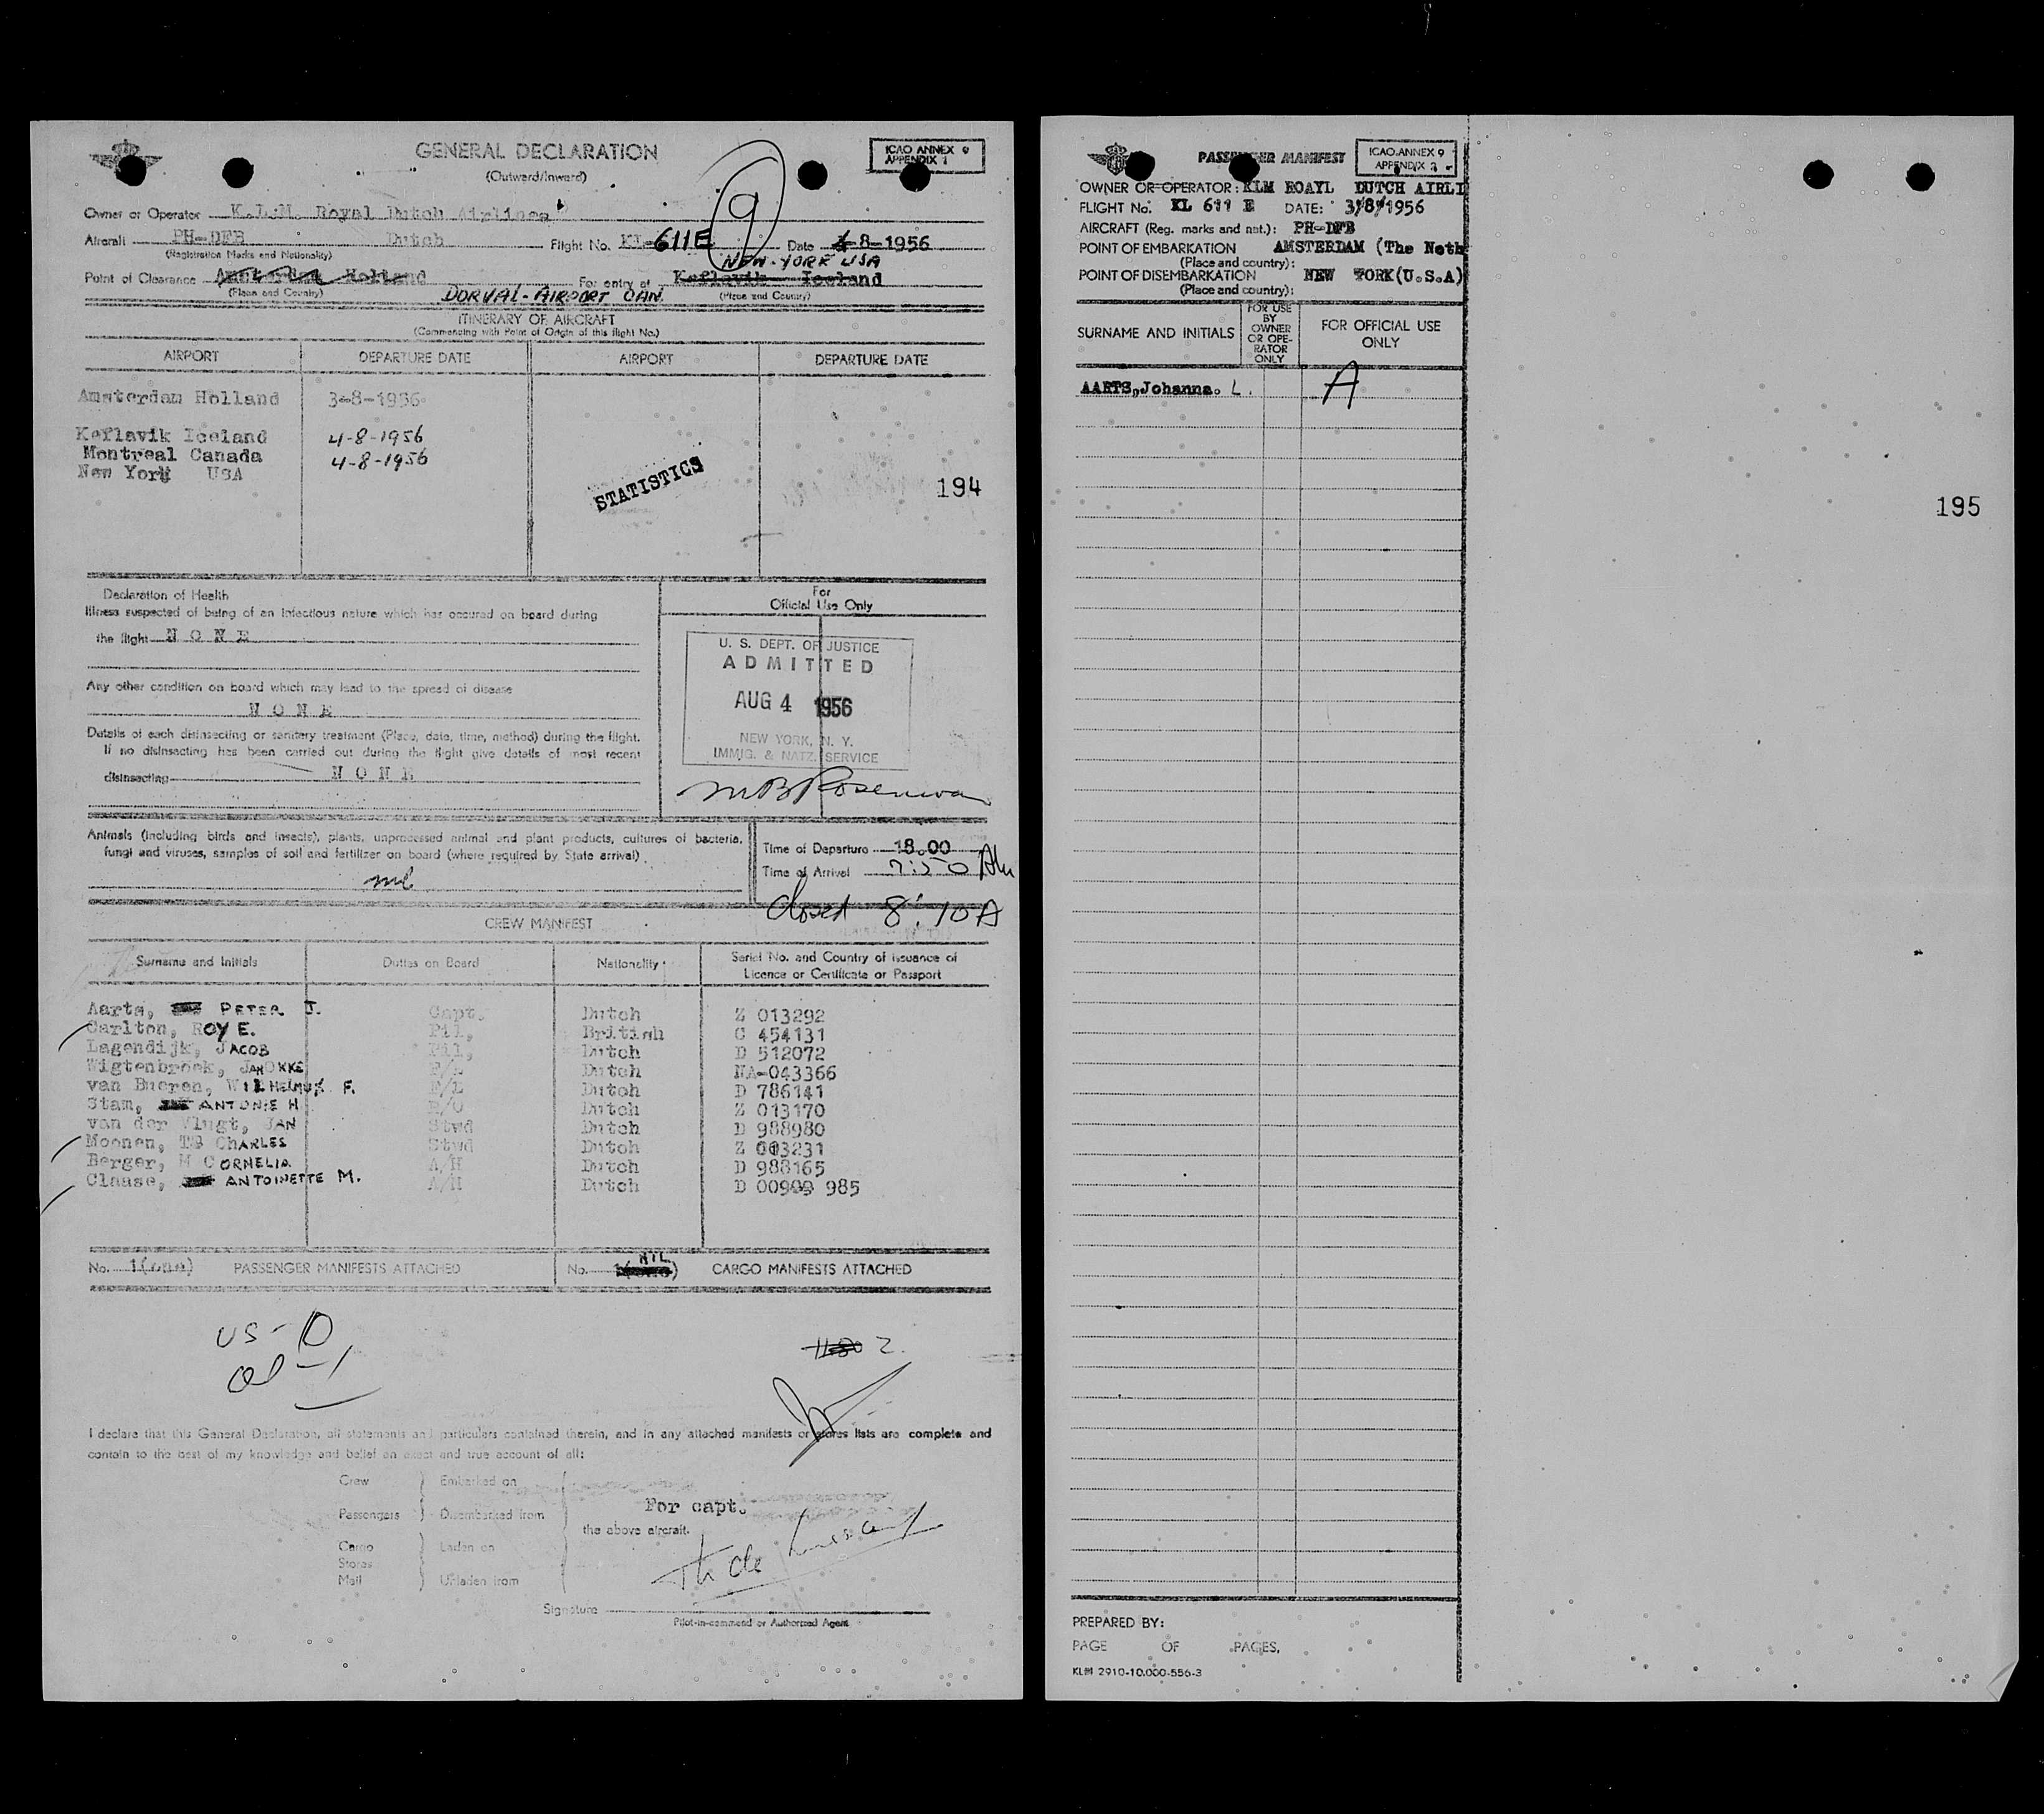 GENERAL DECLARATION
(Outward/Inward)
ICAO ANNEX 9
APPENDIX 1
9
Owner or Operator K.L.M. Royal Dutch Airlines
Aircraft PH-DFB Dutch Flight No. KL-611E Date 4-8-1956
(Registration Marks and Nationality)
NEW-YORK USA
Point of Clearance Amsterdam Holland For entry at Keflavik Iceland
(Place and Country) DORVAL-AIRPORT CAN. (Place and Country)
ITINERARY OF AIRCRAFT
(Commencing with Point of Origin of this flight No.)
AIRPORT DEPARTURE DATE AIRPORT DEPARTURE DATE
Amsterdam Holland 3-8-1956
Keflavik Iceland 4-8-1956
Montreal Canada 4-8-1956
New York USA
STATISTICS
194
Declaration of Health
Illness suspected of being of an infectious nature which has occured on board during
the flight N O N E
Any other condition on board which may lead to the spread of disease
N O N E
Details of each disinsecting or sanitary treatment (Place, date, time, method) during the flight.
If no disinsecting has been carried out during the flight give details of most recent
disinsecting N O N E
For
Official Use Only
U. S. DEPT. OF JUSTICE
ADMITTED
AUG 4 1956
NEW YORK, N. Y.
IMMIG. & NATZ. SERVICE
Animals (including birds and insects), plants, unprocessed animal and plant products, cultures of bacteria,
fungi and viruses, samples of soil and fertilizer on board (where required by State arrival)
nil
Time of Departure 18.00
Time of Arrival 7:50 AM
Closed 8:10A
CREW MANIFEST
Surname and Initials Duties on Board Nationality Serial No. and Country of issuance of
Licence or Certificate or Passport
Aarts, PETER J. Capt. Dutch Z 013292
Carlton, ROY E. Pil, British C 454131
Lagendijk, JACOB Pil, Dutch D 512072
Wigtenbroek, JAN OKKE F/E Dutch NA-043366
van Bueren, WILHELMUS F. F/E Dutch D 786141
Stam, ANTONIE H R/O Dutch Z 013170
van der Vlugt, JAN Stwd Dutch D 988980
Moonen, TB CHARLES Stwd Dutch Z 013231
Berger, M CORNELIA A/H Dutch D 988165
Claase, ANTOINETTE M. A/H Dutch D 00909 985
No. 1(one) PASSENGER MANIFESTS ATTACHED No. NIL CARGO MANIFESTS ATTACHED
US-0
al-1
2.
I declare that this General Declaration, all statements and particulars contained therein, and in any attached manifests or stores lists are complete and
contain to the best of my knowledge and belief an exact and true account of all:
Crew Embarked on
Passengers Disembarked from
For capt.
the above aircraft.
Cargo Laden on
Stores
Mail Unladen from
Signature
Pilot-in-command or Authorized Agent
PASSENGER MANIFEST
ICAO.ANNEX 9
APPENDIX 2
OWNER OR OPERATOR: KLM ROAYL DUTCH AIRLI
FLIGHT No. KL 611 E DATE: 3/8/1956
AIRCRAFT (Reg. marks and nat.): PH-DFB
POINT OF EMBARKATION AMSTERDAM (The Neth
(Place and country):
POINT OF DISEMBARKATION NEW YORK(U.S.A)
(Place and country):
SURNAME AND INITIALS
FOR USE BY OWNER OR OPE-RATOR ONLY
FOR OFFICIAL USE ONLY
AARTS,Johanna. L. A
195
PREPARED BY:
PAGE OF PAGES,
KLM 2910-10.000-556-3